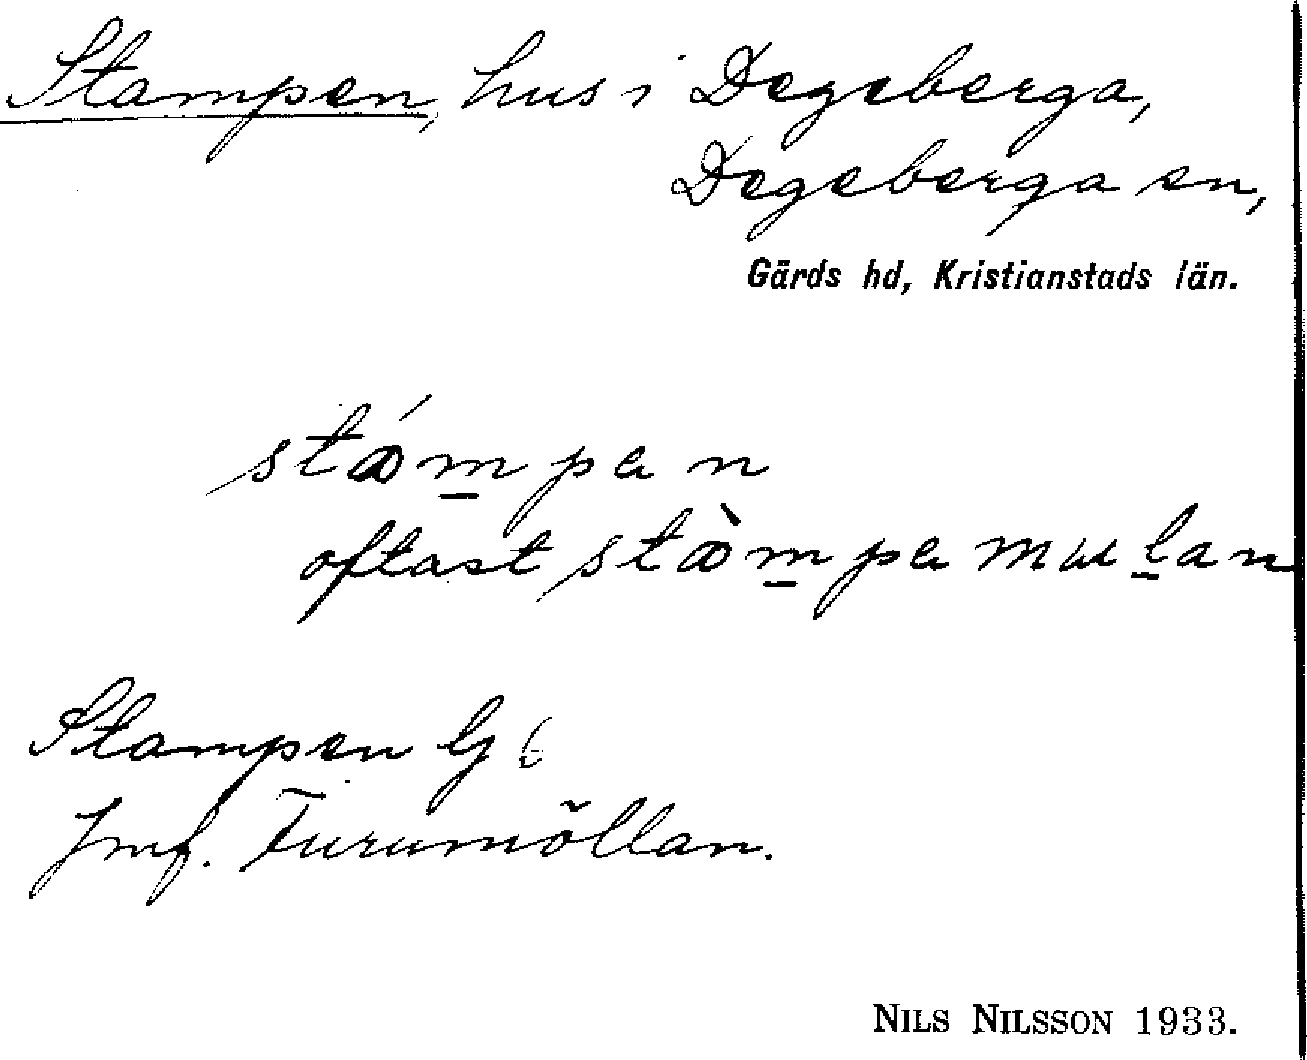 Stampen, hus i Degeberga,
Degeberga sn,
Gärds hd, Kristianstads län.
stámpən
oftast stàmpəmɯlan
Stampen G 6
Jmf. Furumöllan.
NILS NILSSON 1933.